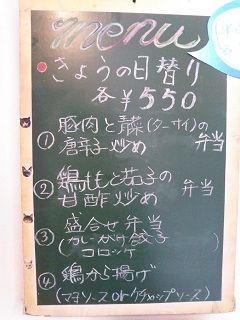 menu
きょうの日替り
各¥550
① 豚肉と (ターサイ)の
唐辛子炒め 弁当
② 鶏ももと茄子の
甘酢炒め 弁当
③ 盛合せ弁当
(カレーがけ餃子
コロッケ
④ 鶏から揚げ
(マヨソースorケチャップソース)